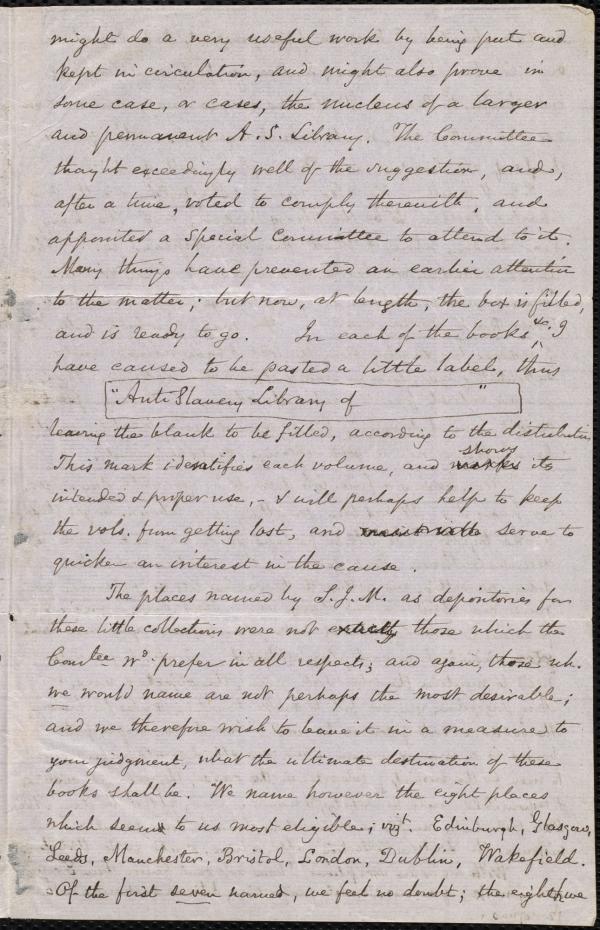 might do a very useful work by being put and
kept in circulation, and might also prove in
some case, or cases, the nucleus of a larger
and permanent A. S. Library. The Committee
thought exceedingly well of the suggestion, and,
after a time, voted to comply therewith, and
appointed a Special Committee to attend to it.
Many things have prevented an earlier attention
to the matter; but now, at length, the box is filled,
and is ready to go. In each of the books, &c. I
have caused to be pasted a little label, thus
"Anti Slavery Library of "
leaving the blank to be filled, according to the distribution
This mark identifies each volume, and shows its
intended & proper use, - & will perhaps help to keep
the vols. from getting lost, and serve to
quicken an interest in the cause.
The places named by S. J. M. as depositories for
these little collections were not exactly those which the
Comtee wd. prefer in all respects; and again, those wh.
we would name are not perhaps the most desirable;
and we therefore wish to leave it in a measure to
your judgment, what the ultimate destination of these
books shall be. We name however the eight places
which seem to us most eligible; vizt. Edinburgh, Glasgow,
Leeds, Manchester, Bristol, London, Dublin, Wakefield.
Of the first seven named, we feel no doubt; the eighth we